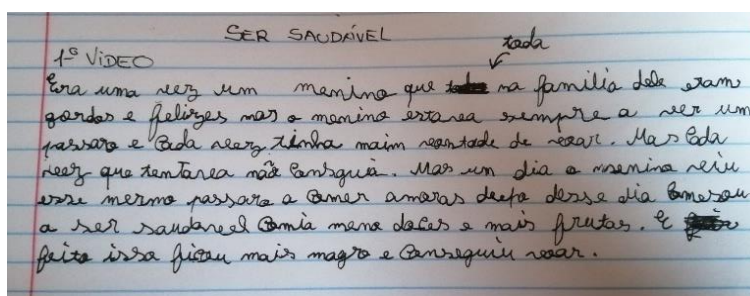 SER SAUDÁVEL
toda
1º VIDEO
Era uma vez um menino que na familia dele eram
gordos e felizes mas o menino estava sempre a ver um
passaro e cada vez tinha maim vontade de voar. Mas cada
vez que tentava não conseguia. Mas um dia o menino veiu
esse mesmo passaro a comer amoras depo desse dia comesou
a ser saudavel comia meno doces e mais frutas. E
feito isso ficou mais magro e conseguiu voar.